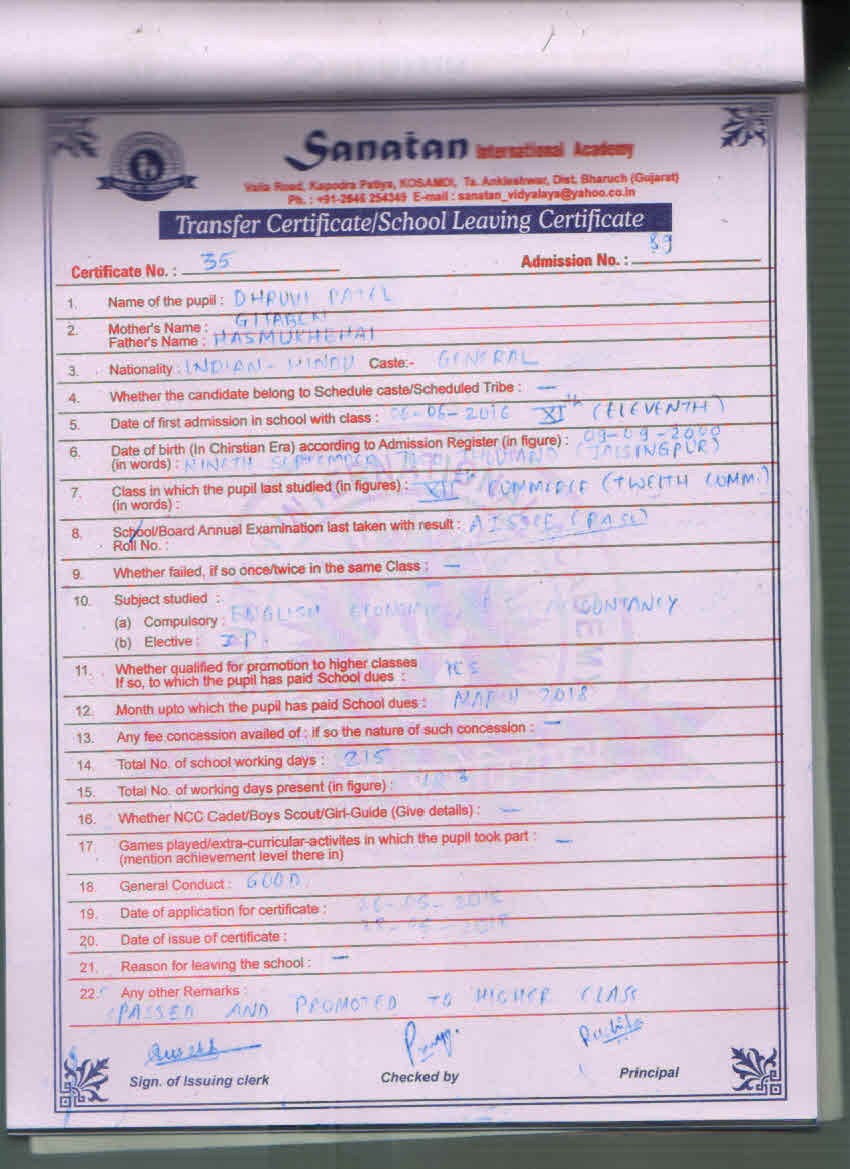 Sanatan International Academy
Valia Road, Kapodra Patiya, KOSAMDI, Ta. Ankleshwar, Dist. Bharuch (Gujarat)
Ph. : +91-2646 254349 E-mail : sanatan_vidyalaya@yahoo.co.in
Transfer Certificate/School Leaving Certificate
Certificate No. : 35 Admission No. : 89
1. Name of the pupil : DHRUVI PATEL
2. Mother's Name : GITABEN
Father's Name : HASMUKHBHAI
3. Nationality : INDIAN - HINDU Caste:- GENERAL
4. Whether the candidate belong to Schedule caste/Scheduled Tribe : —
5. Date of first admission in school with class : 06-06-2016 XIth (ELEVENTH)
6. Date of birth (In Chirstian Era) according to Admission Register (in figure) : 09-09-2000
(in words) : NINETH SEPTEMBER TWO THOUSAND (JAISINGPUR)
7. Class in which the pupil last studied (in figures) : XII COMMERCE (TWELTH COMM.)
(in words) :
8. School/Board Annual Examination last taken with result : AISSCE (PASS)
Roll No. :
9. Whether failed, if so once/twice in the same Class : —
10. Subject studied :
(a) Compulsory : ENGLISH ECONOMIC ACCOUNTANCY
(b) Elective : I.P.
11. Whether qualified for promotion to higher classes YES
If so, to which the pupil has paid School dues :
12. Month upto which the pupil has paid School dues : MARCH 2018
13. Any fee concession availed of : if so the nature of such concession : —
14. Total No. of school working days : 215
15. Total No. of working days present (in figure) :
16. Whether NCC Cadet/Boys Scout/Girl-Guide (Give details) : —
17. Games played/extra-curricular-activites in which the pupil took part : —
(mention achievement level there in)
18. General Conduct : GOOD.
19. Date of application for certificate : 26-05-2018
20. Date of issue of certificate : 28-05-2018
21. Reason for leaving the school : —
22. Any other Remarks :
PASSED AND PROMOTED TO HIGHER CLASS
Sign. of Issuing clerk Checked by Principal